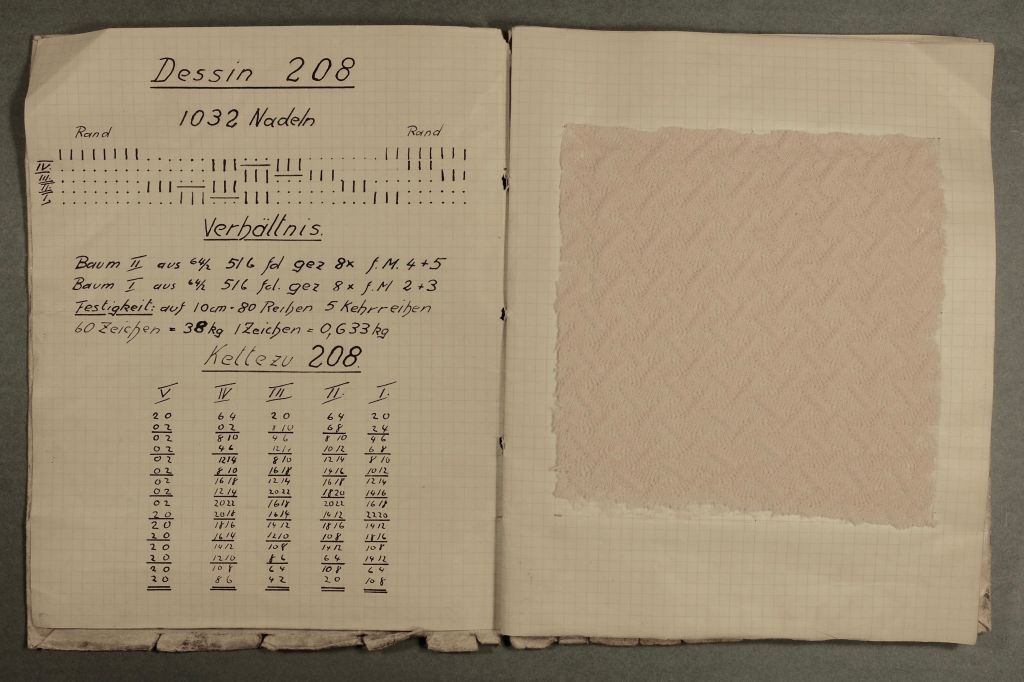 Dessin 208
1032 Nadeln
Rand Rand
IV.
III.
II.
I.
Verhältnis.
Baum II aus 64/2 5/6 fd gez 8x f. M. 4+5
Baum I aus 64/2 5/6 fd. gez 8 x f. M 2+3
Festigkeit: auf 10cm - 80 Reihen 5 Kehrreihen
60 Zeichen = 38kg 1 Zeichen = 0,633 kg
Kette zu 208.
V IV III II I.
20 64 20 64 20
02 02 8/10 68 24
02 8/10 46 8/10 46
02 46 12/ 10/12 68
02 12/14 8/10 12/14 8/10
02 8/10 16/18 14/16 10/12
02 16/18 12/14 16/18 12/14
02 12/14 20/22 18/20 14/16
02 20/22 16/18 20/22 16/18
20 20/18 16/14 14/12 22/20
20 18/16 14/12 18/16 14/12
20 16/14 12/10 10 8 18/16
20 14/12 10 8 14/12 10 8
20 12/10 86 64 14/12
20 10 8 64 10 8 64
20 86 42 20 10 8